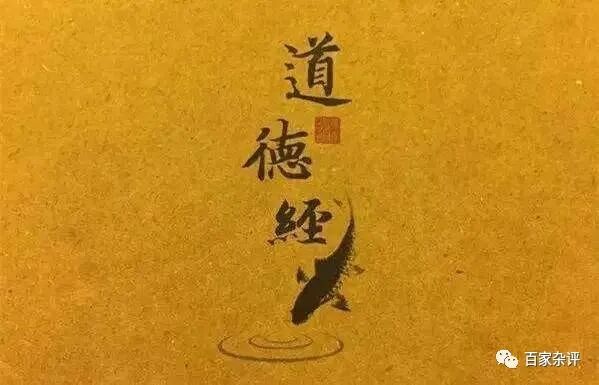 道
德
經
百家杂评